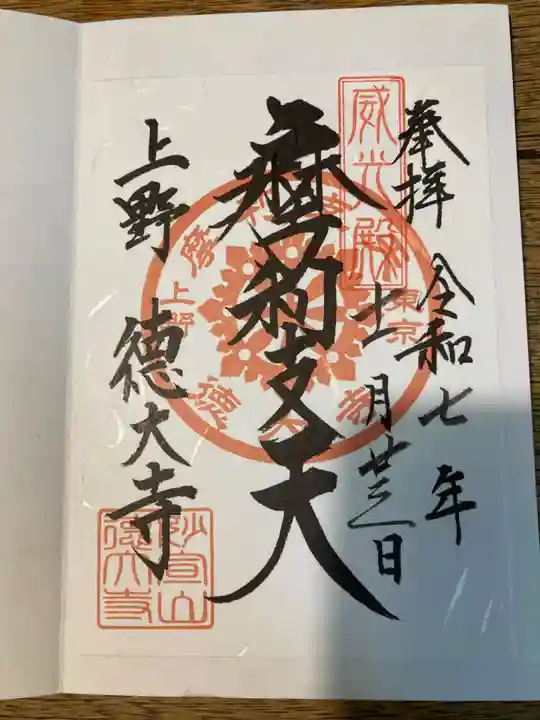 奉拝 令和七年
十一月廿三日
威光殿
摩利支天
上野 徳大寺
東京
上野
妙宣山
徳大寺